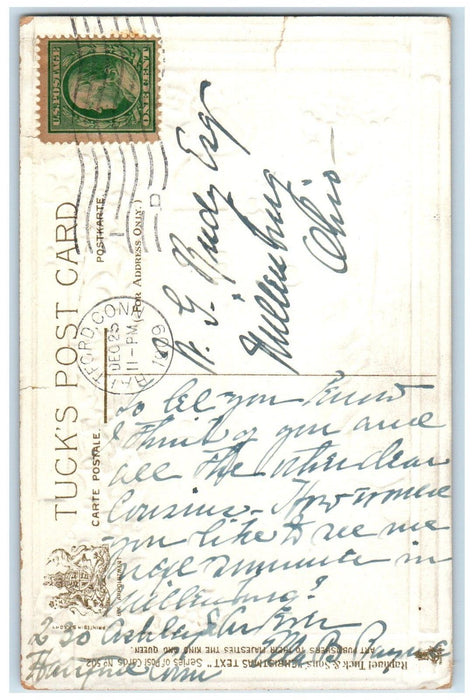 U.S. POSTAGE
ONE CENT
HARTFORD, CONN.
DEC 25
11-PM
1909
D
TUCK'S POST CARD
CARTE POSTALE.
POSTKARTE.
(FOR ADDRESS ONLY.)
Rudy Esq
Millersburg
Ohio
To let you know
I think of you and
all the other dear
Cousins. How would
you like to see me
next summer in
Millersburg?
230 Ashley St
Hartford Conn
Raphael Tuck & Sons' "CHRISTMAS TEXT" Series of Post Cards No 502
ART PUBLISHERS TO THEIR MAJESTIES THE KING AND QUEEN
PRINTED IN SAXONY